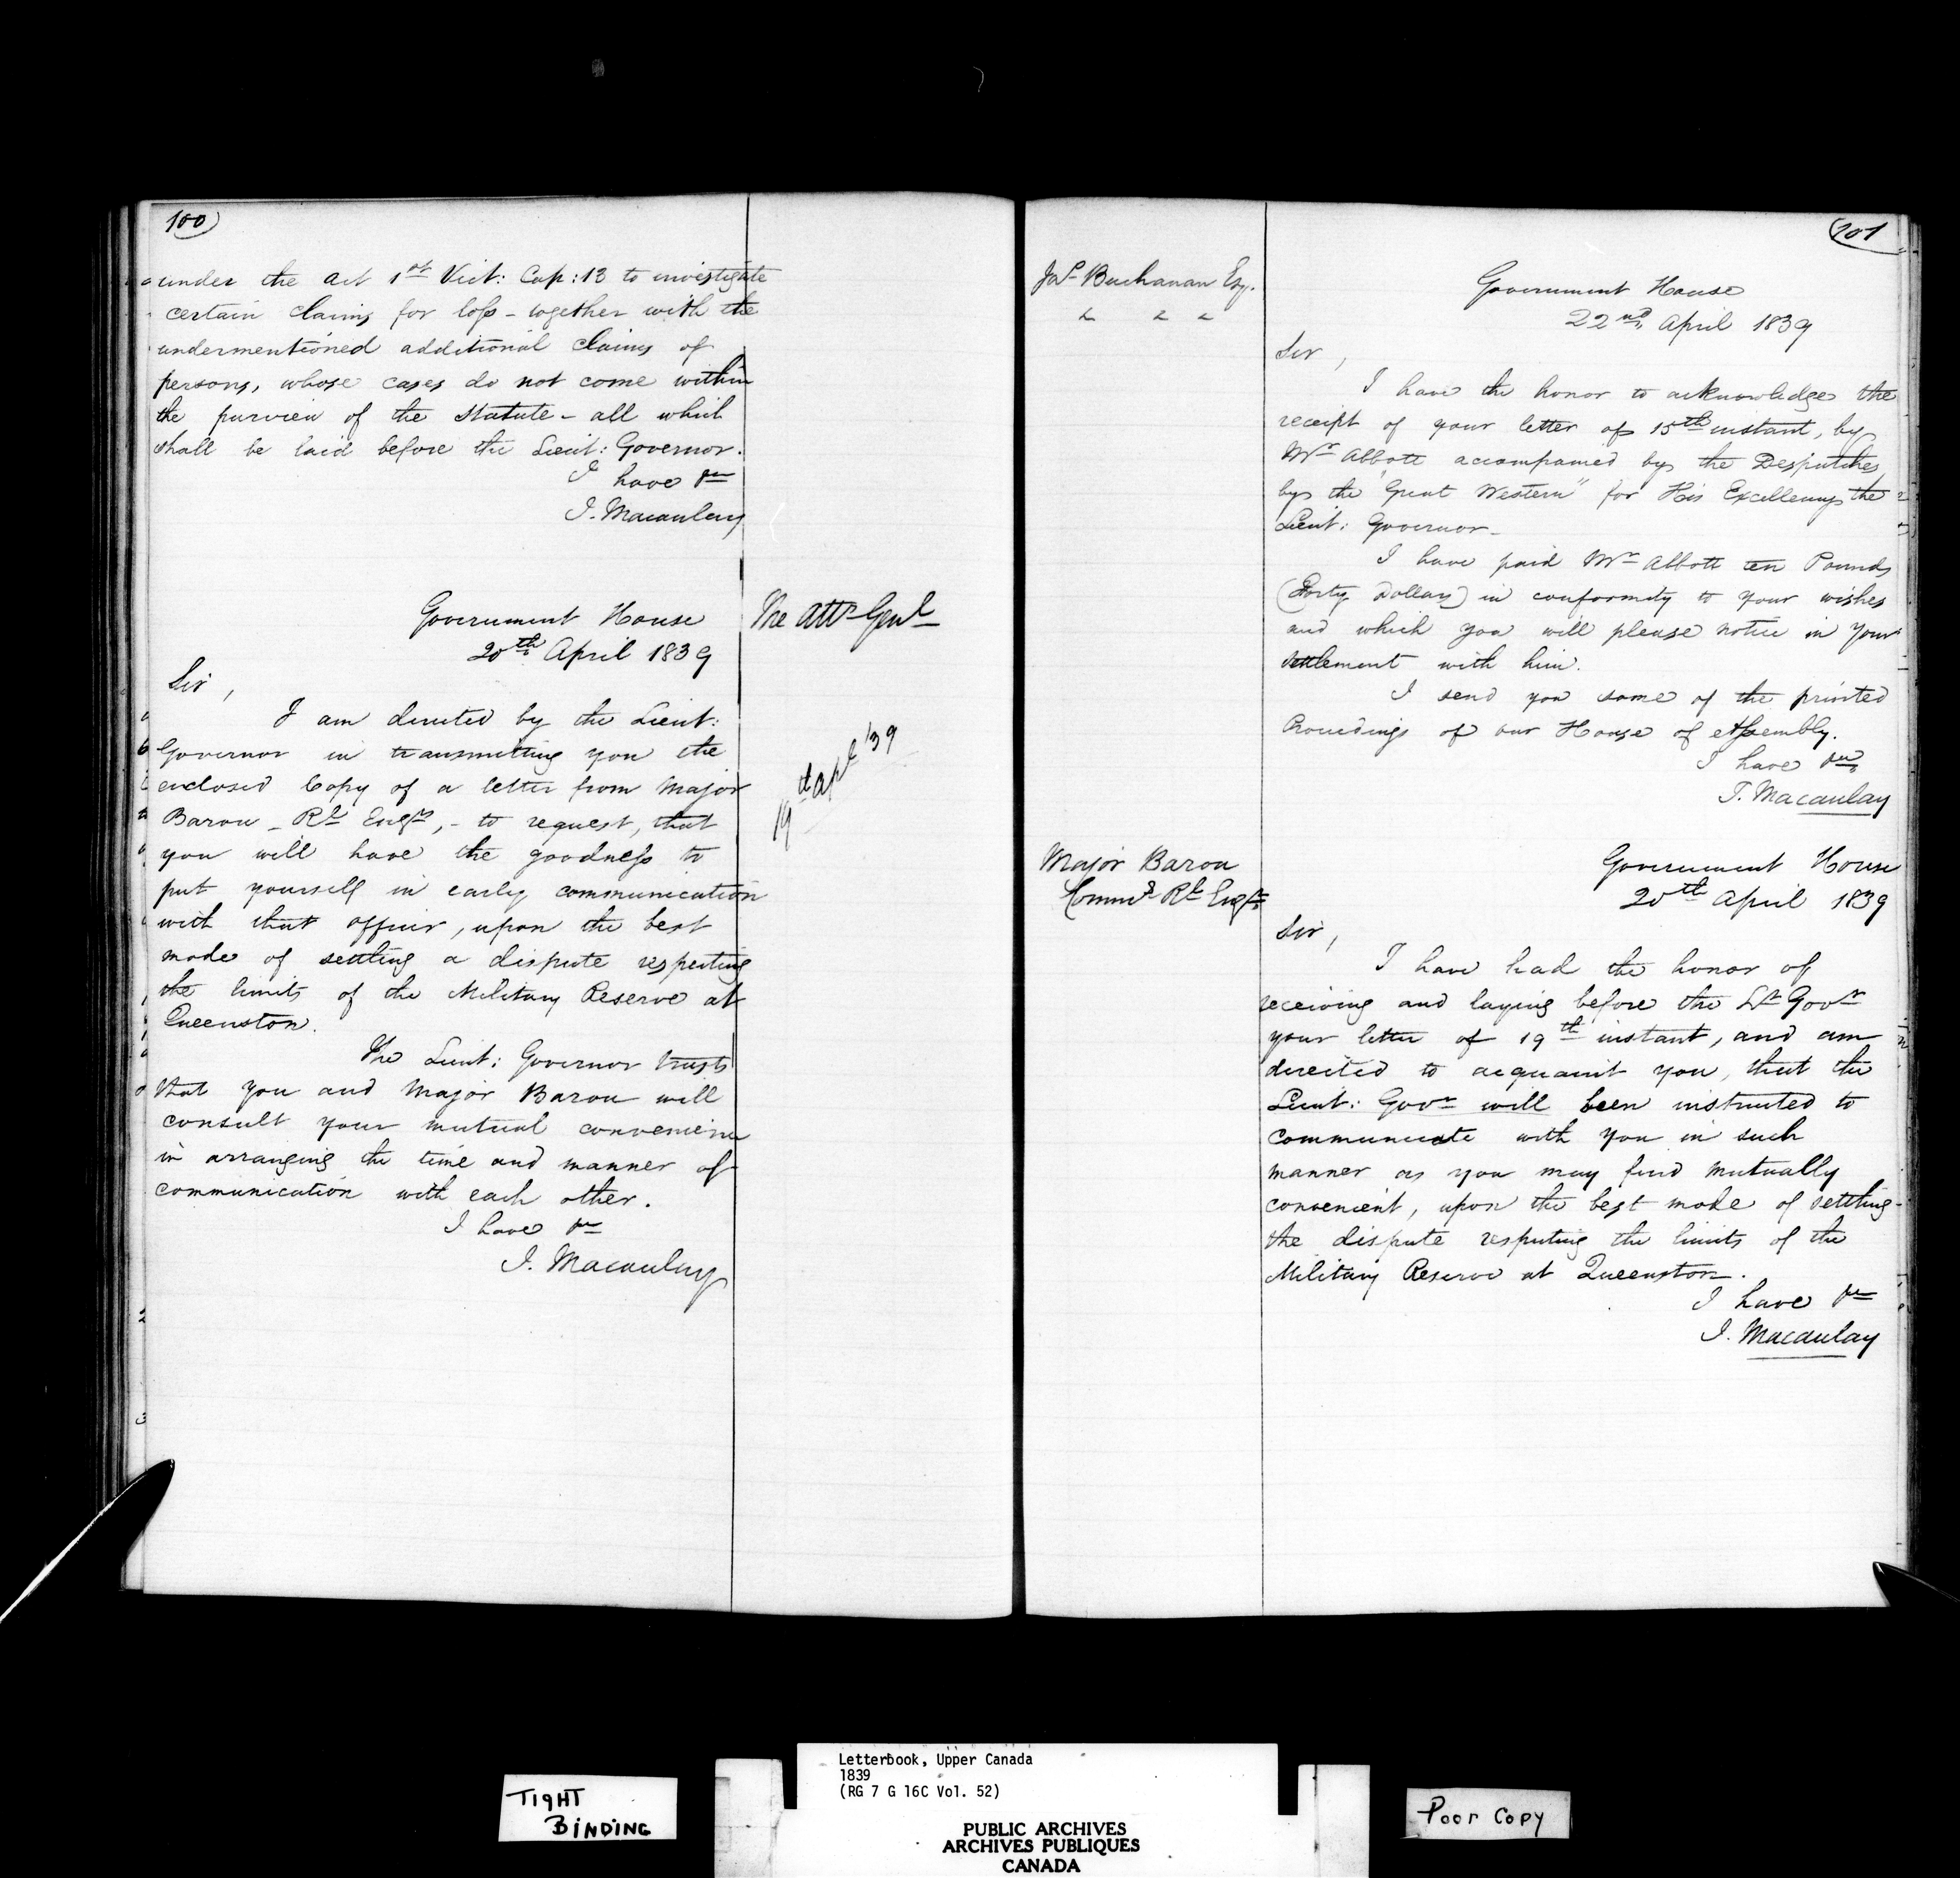 100
under the Act 1st Vict: Cap: 13 to investigate
certain claims for loss - together with the
undermentioned additional claims of
persons, whose cases do not come within
the purview of the Statute - all which
shall be laid before the Lieut: Governor.
I have &c
J. Macaulay
The Atty Genl
Government House
20th April 1839
Sir,
I am directed by the Lieut:
Governor in transmitting you the
enclosed Copy of a letter from Major
Baron - Rl Engrs, - to request, that
you will have the goodness to
put yourself in early communication
with that officer, upon the best
mode of settling a dispute respecting
the limits of the Military Reserve at
Queenston.
19th Apl '39
The Lieut: Governor trusts
that you and Major Baron will
consult your mutual convenience
in arranging the time and manner of
communication with each other.
I have &c
J. Macaulay
201
Jas Buchanan Esq.
Government House
22nd April 1839
Sir,
I have the honor to acknowledge the
receipt of your letter of 15th instant, by
Mr Abbott accompanied by the Despatches
by the "Great Western" for His Excellency the
Lieut: Governor -
I have paid Mr Abbott ten Pounds
(Forty Dollars) in conformity to your wishes
and which you will please notice in your
settlement with him.
I send you some of the printed
Proceedings of our House of Assembly.
I have &c
J. Macaulay
Major Baron
Commg Rl Engrs
Government House
20th April 1839
Sir,
I have had the honor of
receiving and laying before the Lt Govr
your letter of 19th instant, and am
directed to acquaint you, that the
Lieut: Govr will been instructed to
communicate with you in such
manner as you may find mutually
convenient, upon the best mode of settling
the dispute respecting the limits of the
Military Reserve at Queenston.
I have &c
J. Macaulay
TIGHT
BINDING
Letterbook, Upper Canada
1839
(RG 7 G 16C Vol. 52)
PUBLIC ARCHIVES
ARCHIVES PUBLIQUES
CANADA
Poor Copy